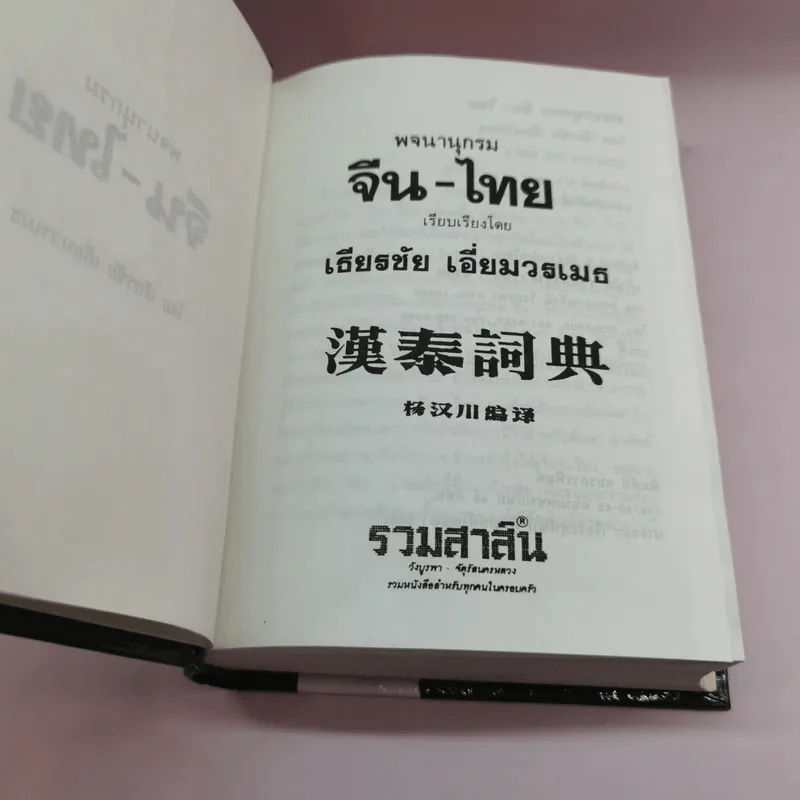 พจนานุกรม
จีน-ไทย
เรียบเรียงโดย
เธียรชัย เอี่ยมวรเมธ
漢泰詞典
杨汉川编译
รวมสาส์น®
วังบูรพา - จัตุรัสนครหลวง
รวมหนังสือสำหรับทุกคนในครอบครัว